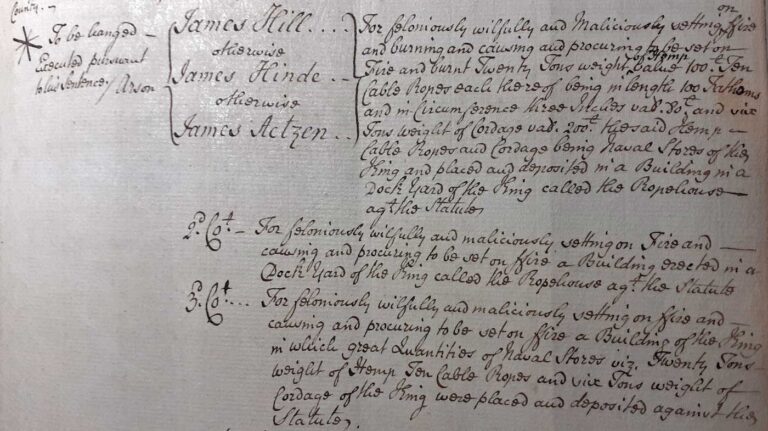 County. —
To be hanged —
Executed pursuant
to his sentence / Arson
James Hill . . . .
otherwise
James Hinde —
otherwise
James Actzen . .
For feloniously wilfully and Maliciously setting on ffire
and burning and causing and procuring to be set on
Fire and burnt Twenty Tons weight of Hemp value 100£. Ten
Cable Ropes each thereof being in length 100 Fathoms
and in Circumference three Inches val. 80£. and six
Tons weight of Cordage val. 200£. the said Hemp —
Cable Ropes and Cordage being Naval Stores of the
King and placed and deposited in a Building in a
Dock Yard of the King called the Ropehouse —
agt. the Statute
2d. Cot. — For feloniously wilfully and maliciously setting on Fire and —
causing and procuring to be set on ffire a Building erected in a
Dock Yard of the King called the Ropehouse agt. the Statute
3d. Cot. ... For feloniously wilfully and maliciously setting on ffire and —
causing and procuring to be set on ffire a Building of the King
in which great Quantities of Naval Stores viz. Twenty Tons
weight of Hemp Ten Cable Ropes and six Tons weight of —
Cordage of the King were placed and deposited against the
Statute,